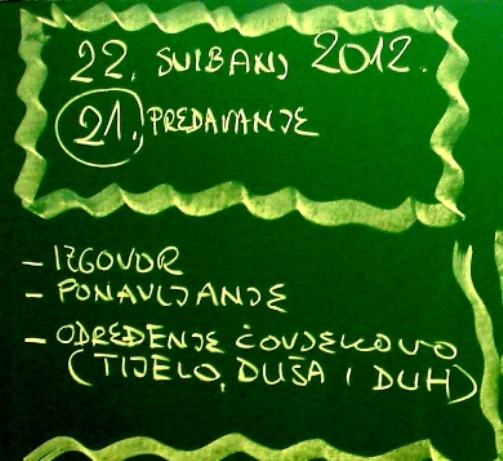 22. SVIBANJ 2012.
21. PREDAVANJE
- IZGOVOR
- PONAVLJANJE
- ODREĐENJE ČOVJEKOVO
(TIJELO, DUŠA I DUH)